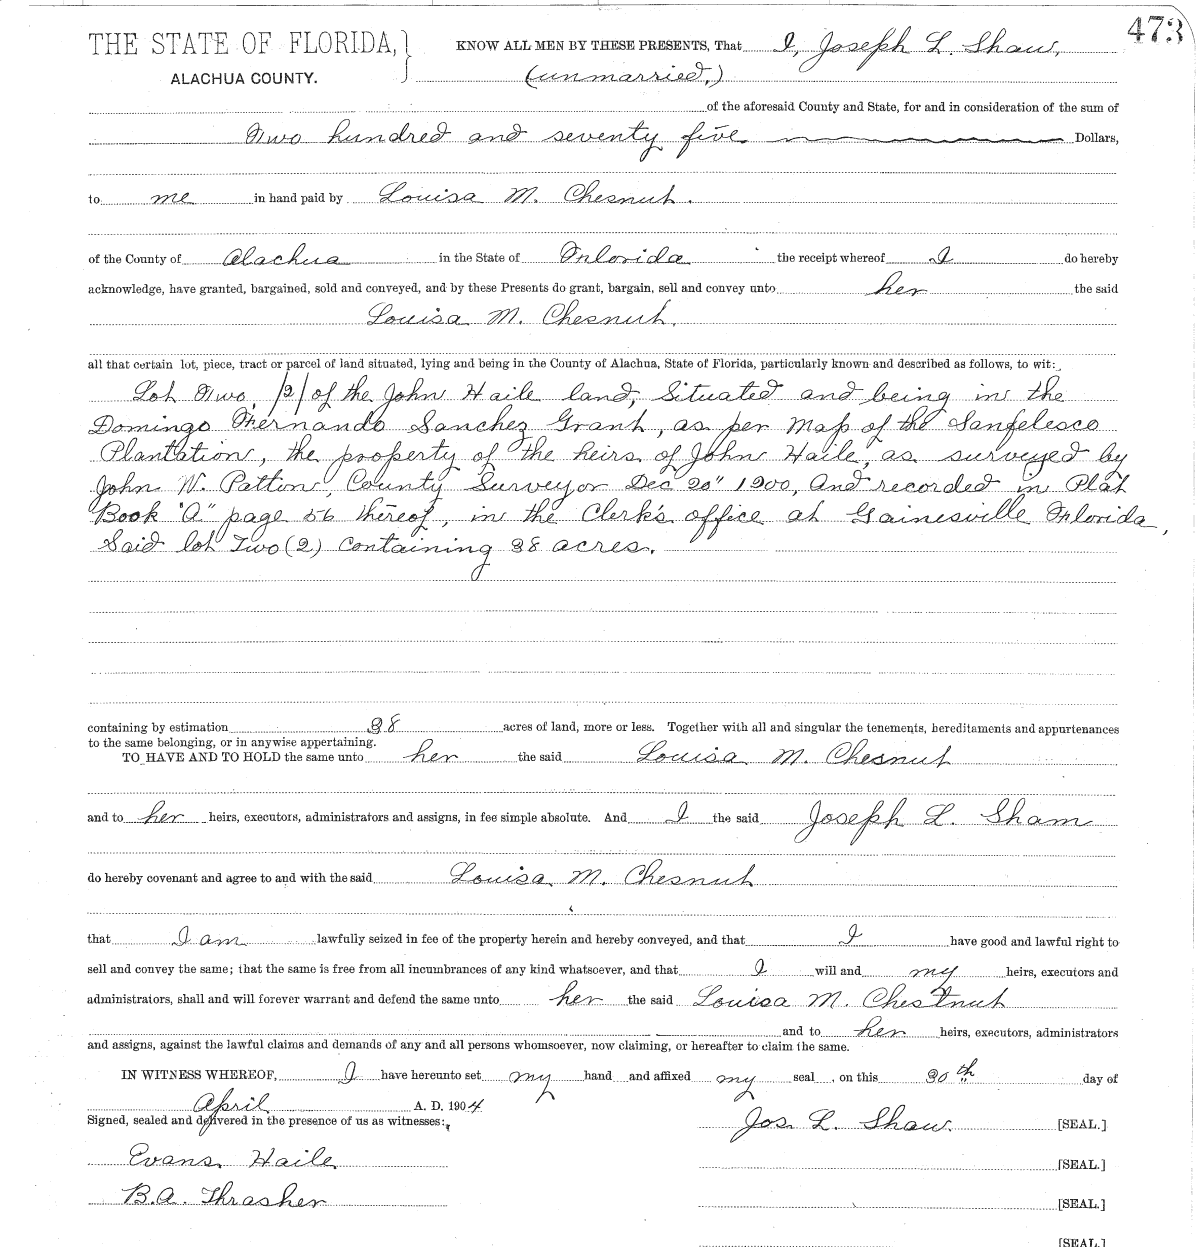 473
THE STATE OF FLORIDA,
ALACHUA COUNTY.
KNOW ALL MEN BY THESE PRESENTS, That I, Joseph L. Shaw,
(unmarried,)
of the aforesaid County and State, for and in consideration of the sum of
Two hundred and seventy five Dollars,
to me in hand paid by Louisa M. Chesnut.
of the County of Alachua in the State of Florida the receipt whereof I do hereby
acknowledge, have granted, bargained, sold and conveyed, and by these Presents do grant, bargain, sell and convey unto her the said
Louisa M. Chesnut.
all that certain lot, piece, tract or parcel of land situated, lying and being in the County of Alachua, State of Florida, particularly known and described as follows, to wit:
Lot Two, /2/ of the John Haile land, Situated and being in the
Domingo Fernando Sanchez Grant, as per Map of the Sanfelesco
Plantation, the property of the heirs of John Haile, as surveyed by
John W. Patton, County Surveyor Dec 20" 1900, And recorded in Plat
Book "A" page 56 thereof, in the Clerk's office at Gainesville Florida,
Said lot Two (2) Containing 38 acres.
containing by estimation 38 acres of land, more or less. Together with all and singular the tenements, hereditaments and appurtenances
to the same belonging, or in anywise appertaining.
TO HAVE AND TO HOLD the same unto her the said Louisa M. Chesnut
and to her heirs, executors, administrators and assigns, in fee simple absolute. And I the said Joseph L. Sham
do hereby covenant and agree to and with the said Louisa M. Chesnut
that I am lawfully seized in fee of the property herein and hereby conveyed, and that I have good and lawful right to
sell and convey the same; that the same is free from all incumbrances of any kind whatsoever, and that I will and my heirs, executors and
administrators, shall and will forever warrant and defend the same unto her the said Louisa M. Chestnut
and to her heirs, executors, administrators
and assigns, against the lawful claims and demands of any and all persons whomsoever, now claiming, or hereafter to claim the same.
IN WITNESS WHEREOF, I have hereunto set my hand and affixed my seal, on this 30th day of
April A. D. 1904
Signed, sealed and delivered in the presence of us as witnesses:
Jos. L. Shaw. [SEAL.]
Evans Haile [SEAL.]
B.A. Thrasher [SEAL.]
[SEAL.]